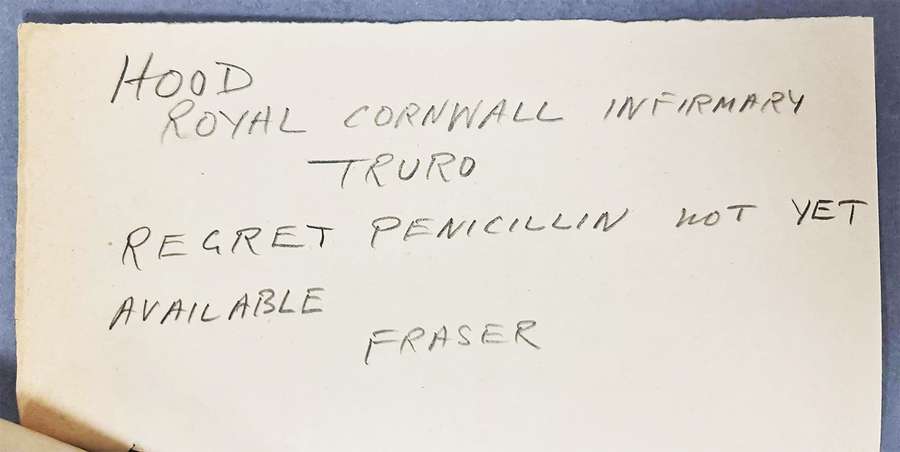 HOOD
ROYAL CORNWALL INFIRMARY
TRURO
REGRET PENICILLIN NOT YET
AVAILABLE
FRASER